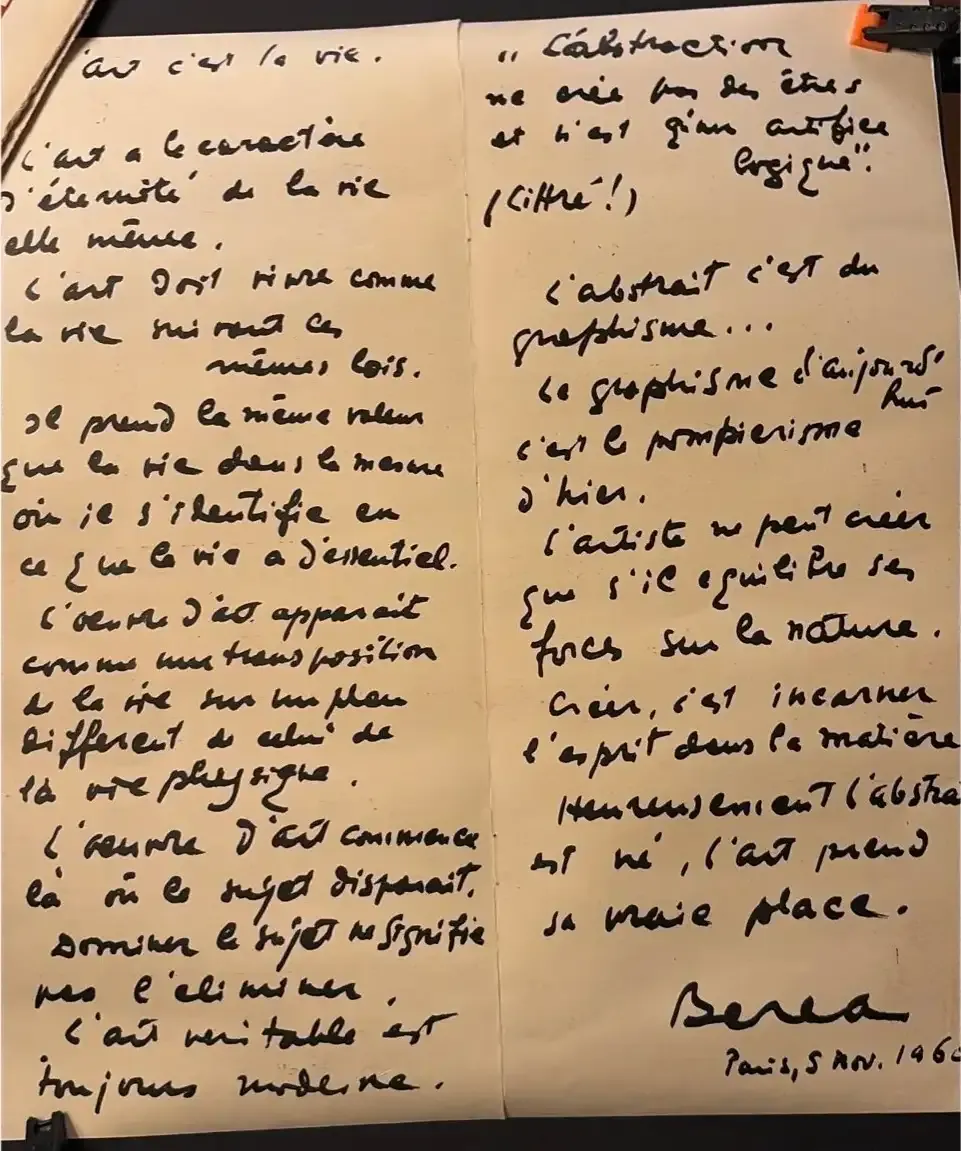 L'art c'est la vie.
L'art a le caractère
d'éternité de la vie
elle même.
L'art doit vivre comme
la vie suivant les
mêmes lois.
Il prend la même valeur
que la vie dans la mesure
où il s'identifie en
ce que la vie a d'essentiel.
L'oeuvre d'art apparait
comme une transposition
de la vie sur un plan
différent de celui de
la vie physique.
L'oeuvre d'art commence
là où le sujet disparait.
Dominer le sujet ne signifie
pas l'eliminer.
L'art veritable est
toujours moderne.
"L'abstraction
ne crée pas des êtres
et n'est qu'un artifice
logique".
(Littré!)
L'abstrait c'est du
graphisme...
Le graphisme d'aujourd'
hui
c'est le pompierisme
d'hier.
L'artiste ne peut créer
que s'il equilibre ses
forces sur la nature.
Créer, c'est incarner
l'esprit dans la matière
Heureusement l'abstra
est né, l'art prend
sa vraie place.
Berea
Paris, 5 Nov. 196